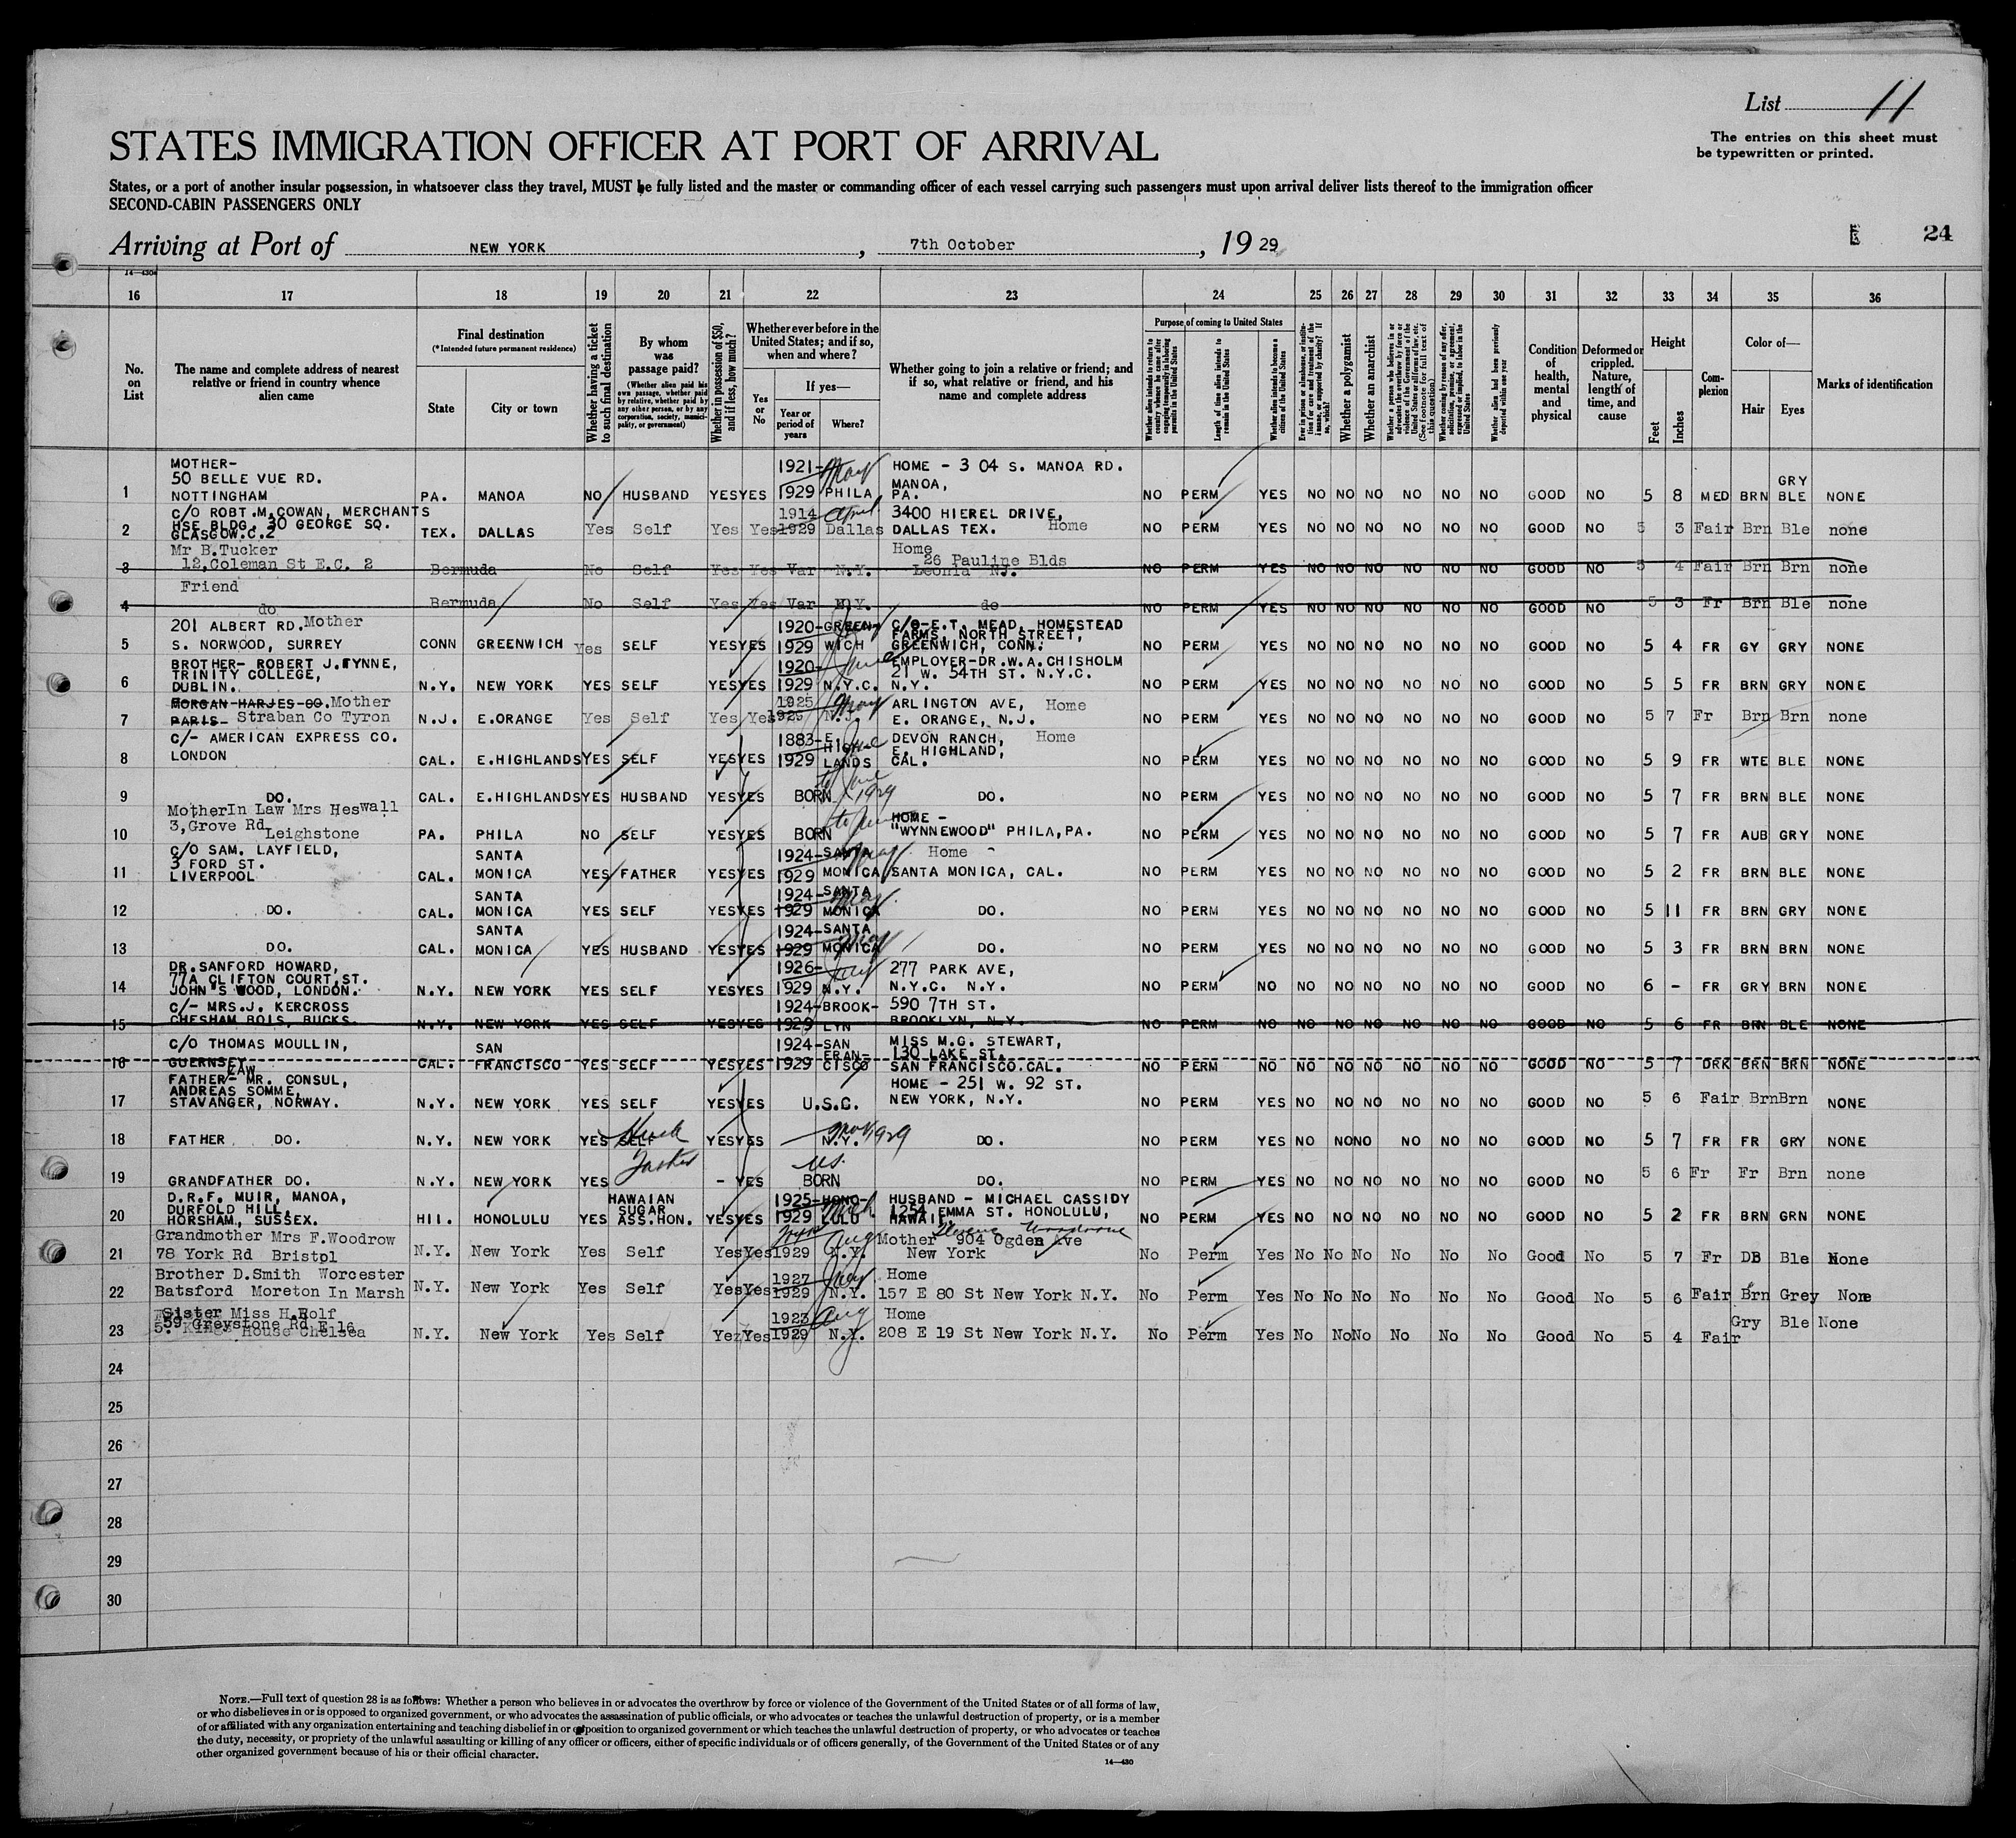 List 11
The entries on this sheet must
be typewritten or printed.
STATES IMMIGRATION OFFICER AT PORT OF ARRIVAL
States, or a port of another insular possession, in whatsoever class they travel, MUST be fully listed and the master or commanding officer of each vessel carrying such passengers must upon arrival deliver lists thereof to the immigration officer
SECOND-CABIN PASSENGERS ONLY
Arriving at Port of NEW YORK, 7th October, 1929
24
14—430
16 17 18 19 20 21 22 23 24 25 26 27 28 29 30 31 32 33 34 35 36
No. on List
The name and complete address of nearest relative or friend in country whence alien came
Final destination
(*Intended future permanent residence)
State
City or town
Whether having a ticket to such final destination
By whom was passage paid?
(Whether alien paid his own passage, whether paid by relative, whether paid by any other person, or by any corporation, society, municipality, or government)
Whether in possession of $50, and if less, how much?
Whether ever before in the United States; and if so, when and where?
Yes or No
If yes—
Year or period of years
Where?
Whether going to join a relative or friend; and if so, what relative or friend, and his name and complete address
Purpose of coming to United States
Whether alien intends to return to country whence he came after engaging temporarily in laboring pursuits in the United States
Length of time alien intends to remain in the United States
Whether alien intends to become a citizen of the United States
Ever in prison or almshouse, or institution for care and treatment of the insane, or supported by charity? If so, which?
Whether a polygamist
Whether an anarchist
Whether a person who believes in or advocates the overthrow by force or violence of the Government of the United States or all forms of law, etc. (See footnote for full text of this question)
Whether coming by reason of any offer, solicitation, promise, or agreement, expressed or implied, to labor in the United States
Whether alien had been previously deported within one year
Condition of health, mental and physical
Deformed or crippled. Nature, length of time, and cause
Height
Feet
Inches
Complexion
Color of—
Hair
Eyes
Marks of identification
1 MOTHER- 50 BELLE VUE RD. NOTTINGHAM PA. MANOA NO HUSBAND YES YES 1921- 1929 PHILA May HOME - 304 S. MANOA RD. MANOA, PA. NO PERM YES NO NO NO NO NO NO GOOD NO 5 8 MED BRN GRY BLE NONE
2 C/O ROBT.M.COWAN, MERCHANTS HSE BLDG. 30 GEORGE SQ. GLASGOW.C.2 TEX. DALLAS Yes Self Yes Yes 1914 1929 Dallas April 3400 HIEREL DRIVE, DALLAS TEX. Home NO PERM YES NO NO NO NO NO NO GOOD NO 5 3 Fair Brn Ble none
3 Mr B.Tucker 12,Coleman St E.C. 2 Bermuda No Self Yes Yes Var N.Y. Home 26 Pauline Blds Leonia NJ. NO PERM YES NO NO NO NO NO NO GOOD NO 5 4 Fair Brn Brn none
4 Friend do Bermuda No Self Yes Yes Var N.Y. do NO PERM YES NO NO NO NO NO NO GOOD NO 5 3 Fr Brn Ble none
5 201 ALBERT RD. Mother S. NORWOOD, SURREY CONN GREENWICH Yes SELF YES YES 1920- 1929 GREEN- WICH C/O-E.T. MEAD, HOMESTEAD FARMS, NORTH STREET, GREENWICH, CONN. NO PERM YES NO NO NO NO NO NO GOOD NO 5 4 FR GY GRY NONE
6 BROTHER- ROBERT J.FYNNE, TRINITY COLLEGE, DUBLIN. N.Y. NEW YORK YES SELF YES YES 1920- 1929 N.Y.C. June EMPLOYER-DR.W.A.CHISHOLM 21 W. 54TH ST. N.Y.C. N.Y. NO PERM YES NO NO NO NO NO NO GOOD NO 5 5 FR BRN GRY NONE
7 MORGAN HARJES CO. Mother PARIS Straban Co Tyron N.J. E.ORANGE Yes Self Yes Yes 1925 N.J. May ARLINGTON AVE, E. ORANGE, N.J. Home NO PERM YES NO NO NO NO NO NO GOOD NO 5 7 Fr Brn Brn none
8 C/- AMERICAN EXPRESS CO. LONDON CAL. E.HIGHLANDS YES SELF YES YES 1883- 1929 E. HIGH- LANDS June DEVON RANCH, E. HIGHLAND, CAL. Home NO PERM YES NO NO NO NO NO NO GOOD NO 5 9 FR WTE BLE NONE
9 DO. CAL. E.HIGHLANDS YES HUSBAND YES YES BORN to June 1929 DO. NO PERM YES NO NO NO NO NO NO GOOD NO 5 7 FR BRN BLE NONE
10 MotherIn Law Mrs Heswall 3,Grove Rd Leighstone PA. PHILA NO SELF YES YES BORN HOME - "WYNNEWOOD" PHILA,PA. NO PERM YES NO NO NO NO NO NO GOOD NO 5 7 FR AUB GRY NONE
11 C/O SAM. LAYFIELD, 3 FORD ST. LIVERPOOL CAL. SANTA MONICA YES FATHER YES YES 1924- 1929 SANTA MONICA May Home SANTA MONICA, CAL. NO PERM YES NO NO NO NO NO NO GOOD NO 5 2 FR BRN BLE NONE
12 DO. CAL. SANTA MONICA YES SELF YES YES 1924- 1929 SANTA MONICA May DO. NO PERM YES NO NO NO NO NO NO GOOD NO 5 11 FR BRN GRY NONE
13 DO. CAL. SANTA MONICA YES HUSBAND YES YES 1924- 1929 SANTA MONICA May DO. NO PERM YES NO NO NO NO NO NO GOOD NO 5 3 FR BRN BRN NONE
14 DR.SANFORD HOWARD, 77A CLIFTON COURT,ST. JOHN'S WOOD, LONDON. N.Y. NEW YORK YES SELF YES YES 1926- 1929 N.Y. 277 PARK AVE, N.Y.C. N.Y. NO PERM NO NO NO NO NO NO NO GOOD NO 6 - FR GRY BRN NONE
15 C/- MRS.J. KERCROSS CHESHAM BOIS, BUCKS. N.Y. NEW YORK YES SELF YES YES 1924- 1929 BROOK- LYN 590 7TH ST. BROOKLYN, N.Y. NO PERM NO NO NO NO NO NO NO GOOD NO 5 6 FR BRN BLE NONE
16 C/O THOMAS MOULLIN, GUERNSEY CAL. SAN FRANCISCO YES SELF YES YES 1924- 1929 SAN FRAN- CISCO MISS M.G. STEWART, 130 LAKE ST. SAN FRANCISCO.CAL. NO PERM NO NO NO NO NO NO NO GOOD NO 5 7 DRK BRN BRN NONE
17 FATHER/- LAW MR. CONSUL, ANDREAS SOMME, STAVANGER, NORWAY. N.Y. NEW YORK YES SELF YES YES U.S.C. HOME - 251 W. 92 ST. NEW YORK, N.Y. NO PERM YES NO NO NO NO NO NO GOOD NO 5 6 Fair Brn Brn NONE
18 FATHER DO. N.Y. NEW YORK YES SELF YES YES N.Y. 1929 DO. NO PERM YES NO NO NO NO NO NO GOOD NO 5 7 FR FR GRY NONE
19 GRANDFATHER DO. N.Y. NEW YORK YES Father - YES U.S. BORN DO. NO PERM YES NO NO NO NO NO NO GOOD NO 5 6 Fr Fr Brn none
20 D.R.F. MUIR, MANOA, DURFOLD HILL, HORSHAM, SUSSEX. HII. HONOLULU YES HAWAIAN SUGAR ASS.HON. YES YES 1925- 1929 HONO- LULU HUSBAND - MICHAEL CASSIDY 1254 EMMA ST. HONOLULU, HAWAII. NO PERM YES NO NO NO NO NO NO GOOD NO 5 2 FR BRN GRN NONE
21 Grandmother Mrs F.Woodrow 78 York Rd Bristol N.Y. New York Yes Self Yes Yes 1929 N.Y. Aug Mother 904 Ogden Ave New York No Perm Yes No No No No No No Good No 5 7 Fr DB Ble None
22 Brother D.Smith Worcester Batsford Moreton In Marsh N.Y. New York Yes Self Yes Yes 1927 1929 N.Y. Home 157 E 80 St New York N.Y. No Perm Yes No No No No No No Good No 5 6 Fair Brn Grey None
23 Sister Miss H.Rolf 59 Greystone Rd E.16 House Chelsea N.Y. New York Yes Self Yes Yes 1923 1929 N.Y. Aug Home 208 E 19 St New York N.Y. No Perm Yes No No No No No No Good No 5 4 Fair Gry Ble None
24
25
26
27
28
29
30
NOTE.—Full text of question 28 is as follows: Whether a person who believes in or advocates the overthrow by force or violence of the Government of the United States or of all forms of law,
or who disbelieves in or is opposed to organized government, or who advocates the assassination of public officials, or who advocates or teaches the unlawful destruction of property, or is a member
of or affiliated with any organization entertaining and teaching disbelief in or opposition to organized government or which teaches the unlawful destruction of property, or who advocates or teaches
the duty, necessity, or propriety of the unlawful assaulting or killing of any officer or officers, either of specific individuals or of officers generally, of the Government of the United States or of any
other organized government because of his or their official character.
14—430